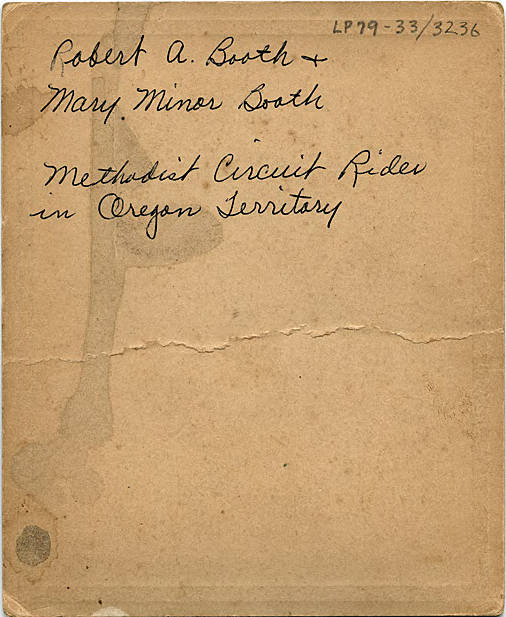 LP79-33/3236
Robert A. Booth +
Mary Minor Booth
Methodist Circuit Rider
in Oregon Territory